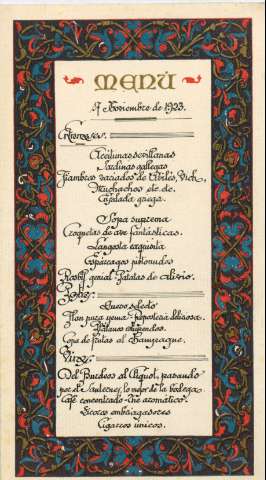 MENÚ
9 Noviembre de 1923.
Entremeses.
Aceitunas sevillanas
Sardinas gallegas
Fiambres variados de Avilés, Vich,
Muchachos etc. etc.
Ensalada griega.
Sopa suprema
Croquetas de ave fantásticas.
Langosta exquisita
Espárragos pistonudos
Rosbif genial Patatas de alivio.
Postres.
Queso helado
Flan pura yema - Repostería deliciosa.
Plátanos estupendos.
Copa de frutas al Champagne.
Vinos.
Del Burdeos al Yiquol, pasando
por el Sauternes, lo mejor de la bodega
Café concentrado - Thé aromático.
Licores embriagadores
Cigarros únicos.